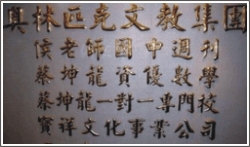 奧林匹克文教集團
侯老師國中週刊
蔡坤龍資優數學
蔡坤龍一對一專門校
寶祥文化事業公司